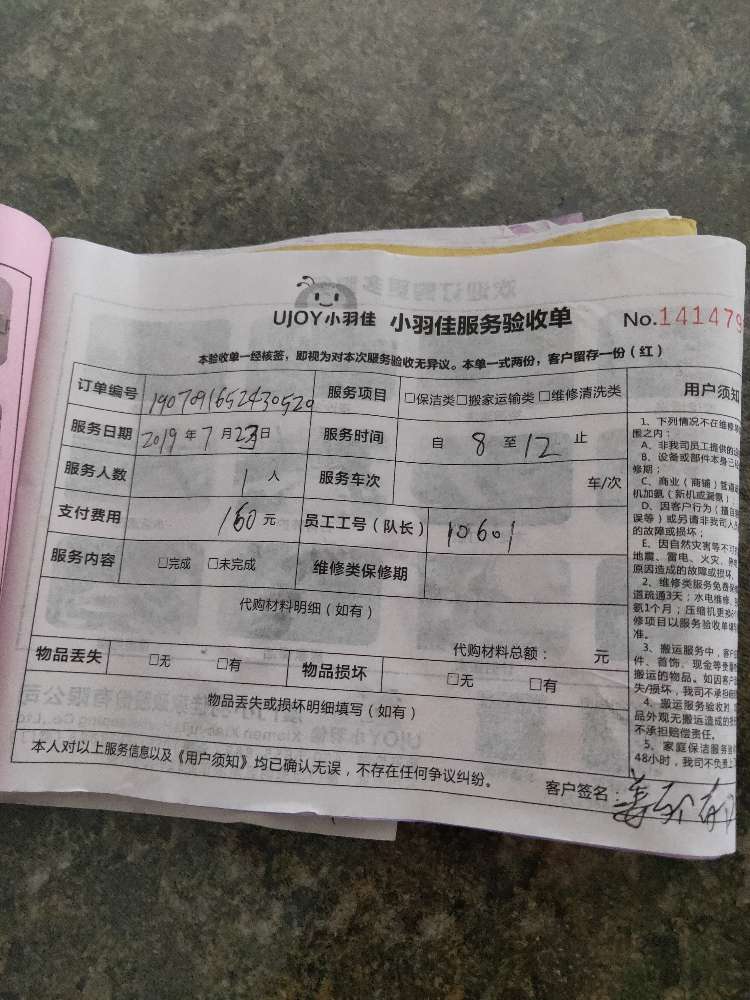 UJOY小羽佳 小羽佳服务验收单 No.141479
本验收单一经核签，即视为对本次服务验收无异议。本单一式两份，客户留存一份（红）
订单编号 1907091652430520 服务项目 □保洁类□搬家运输类 □维修清洗类
服务日期 2019 年 7 月 23 日 服务时间 自 8 至 12 止
服务人数 1 人 服务车次 车/次
支付费用 160 元 员工工号（队长） 10601
服务内容 □完成 □未完成 维修类保修期
代购材料明细（如有）
代购材料总额： 元
物品丢失 □无 □有 物品损坏 □无 □有
物品丢失或损坏明细填写（如有）
本人对以上服务信息以及《用户须知》均已确认无误，不存在任何争议纠纷。
客户签名：
用户须知
1、下列情况不在维修
围之内：
A、非我司员工提供的
B、设备或部件本身已
修期；
C、商业（商铺）管道
机加氨（新机或漏氨）
D、因客户行为（擅自
误等）或另请非我司人员
的故障或损坏；
E、因自然灾害等不可
地震、雷电、火灾、
原因造成的故障或损坏
2、维修类服务免费保
道疏通3天；水电维修
氨1个月；压缩机更换
修项目以服务验收单
准。
3、搬运服务中，客户
件、首饰、现金等贵重
搬运的物品。如因客户
失/损坏，我司不承担
4、搬运服务验收时，
品外观无搬运造成的
不承担赔偿责任。
5、家庭保洁服务
48小时，我司不负责